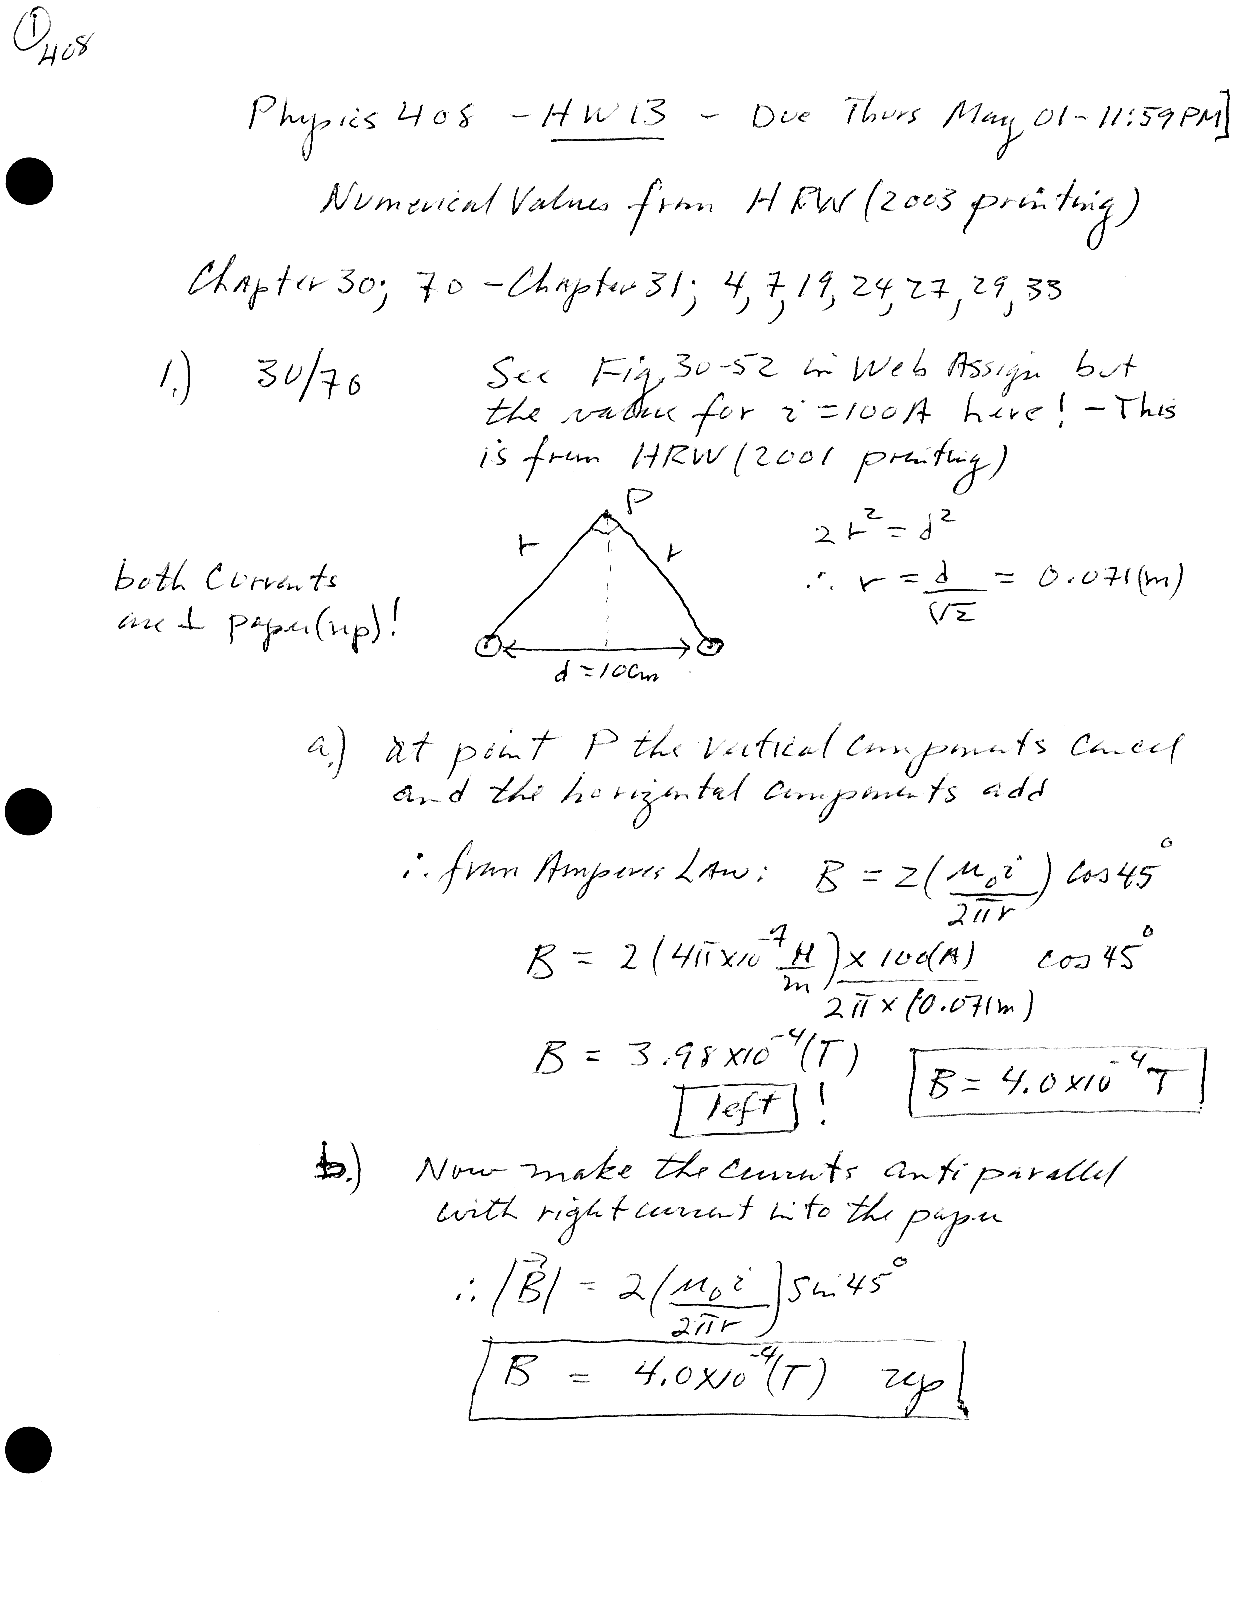 ① 408
Physics 408 - HW 13 - Due Thurs May 01 - 11:59 PM]
Numerical Values from HRW (2003 printing)
Chapter 30; 70 - Chapter 31; 4, 7, 19, 24, 27, 29, 33
1.) 30/70 See Fig, 30-52 in Web Assign but
the value for i = 100A here! - This
is from HRW (2001 printing)
P
r r
2r² = d²
∴ r = d/√2 = 0.071(m)
both Currents
are ⊥ paper (up)!
d = 10cm
a.) at point P the vertical components cancel
and the horizontal components add
∴ from Amperes Law: B = 2(μ₀i/2πr) cos 45°
B = 2(4π×10⁻⁷ H/m) × 100(A)/2π × (0.071m) cos 45°
B = 3.98 × 10⁻⁴ (T)
B = 4.0 × 10⁻⁴ T
left!
b.) Now make the currents antiparallel
with right current into the paper
∴ |B⃗| = 2(μ₀i/2πr) sin 45°
B = 4.0 × 10⁻⁴ (T) up